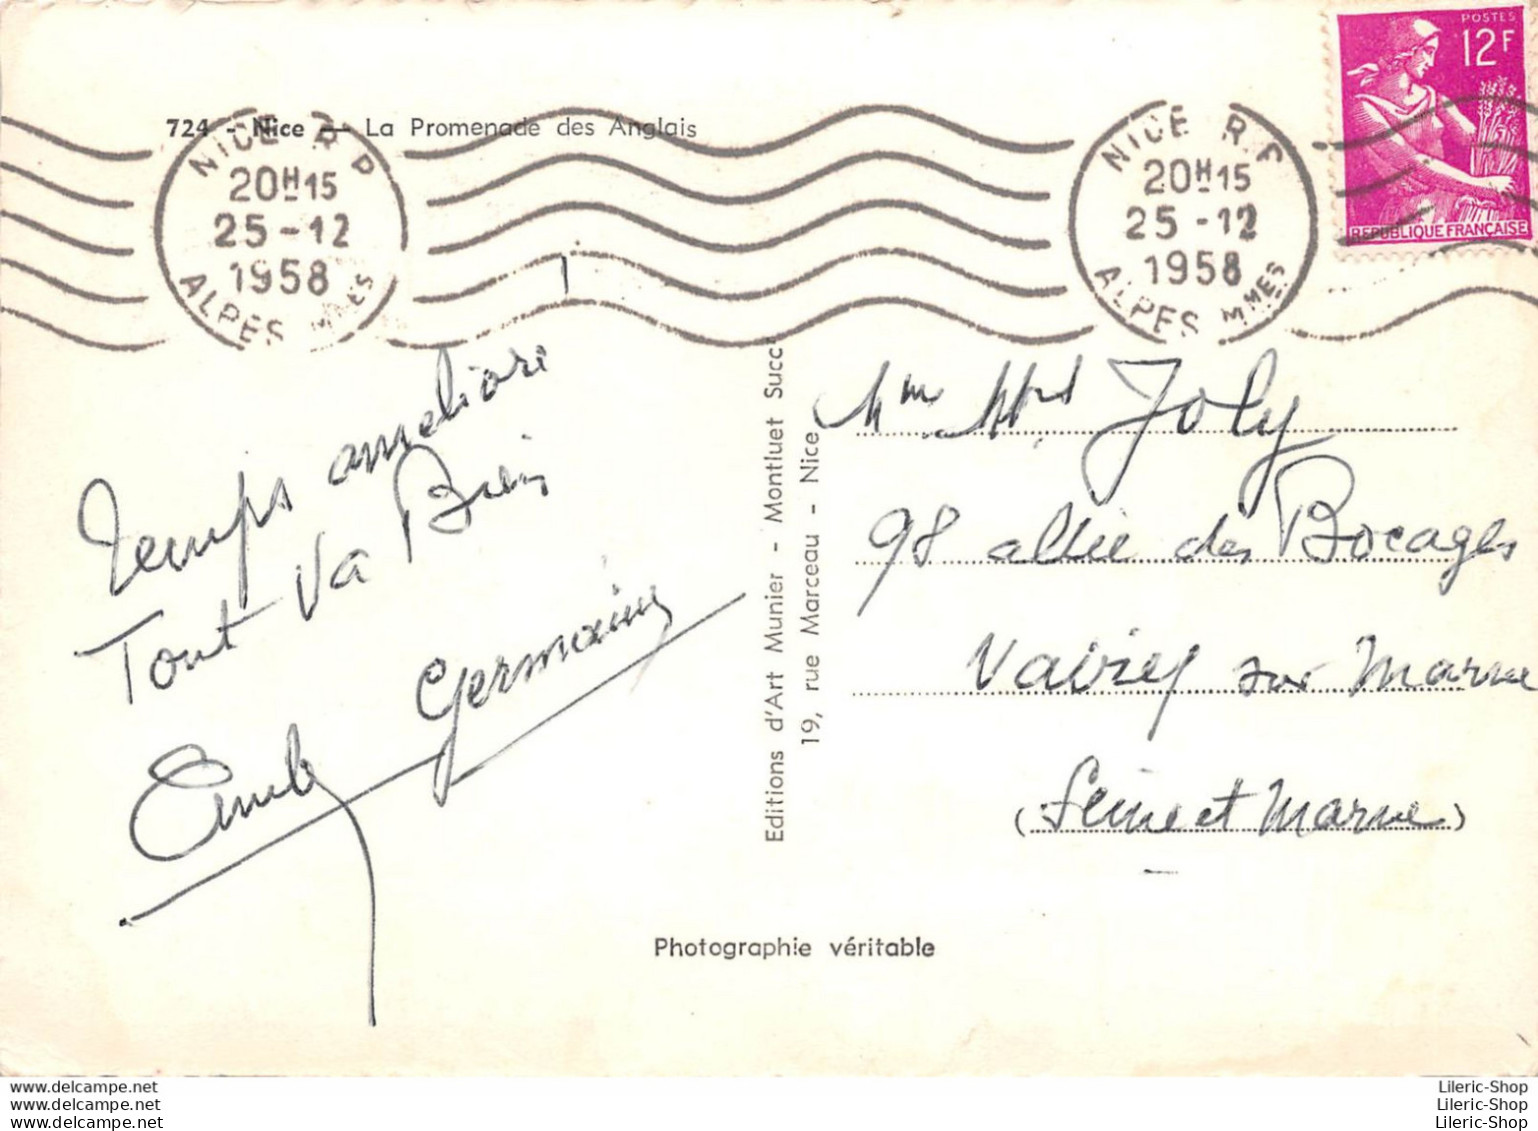 724 - Nice — La Promenade des Anglais
NICE R.P.
20H15
25-12
1958
ALPES MMES
NICE R.P.
20H15
25-12
1958
ALPES MMES
POSTES
12F
REPUBLIQUE FRANÇAISE
Temps améliore
Tout va Bien
Germaine
Editions d'Art Munier - Montluet Succ
19, rue Marceau - Nice
Joly
98 allée des Bocages
Vaires sur Marne
(Seine et Marne)
Photographie véritable
www.delcampe.net
www.delcampe.net
www.delcampe.net
Lileric-Shop
Lileric-Shop
Lileric-Shop